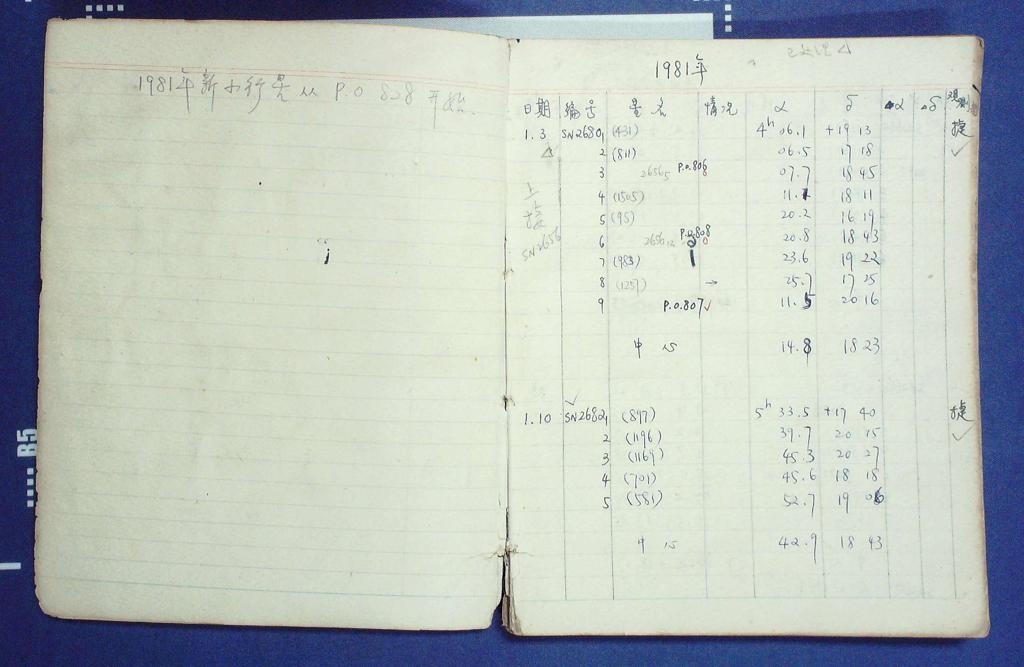 1981年新小行星从 P.O 828 开始
已处理 △
1981年
日期 编号 星名 情况 α δ Δα Δδ 观测
1.3 SN2680 1 (431) 4h 06.1 +19 13 捷
△ 2 (811) 06.5 17 18 ✓
3 2656 5 P.O.806 07.7 18 45
上接 4 (1505) 11.1 18 11
5 (95) 20.2 16 19
SN2656 6 2656 12 P.O.808 20.8 18 43
7 (983) 23.6 19 22
8 (1257) → 25.7 17 25
9 P.O.807 ✓ 11.5 20 16
中心 14.8 18 23
✓
1.10 SN2682 1 (897) 5h 33.5 +17 40 捷
2 (1196) 39.7 20 15 ✓
3 (1169) 45.3 20 27
4 (701) 45.6 18 18
5 (581) 52.7 19 06
中心 42.9 18 43
B5